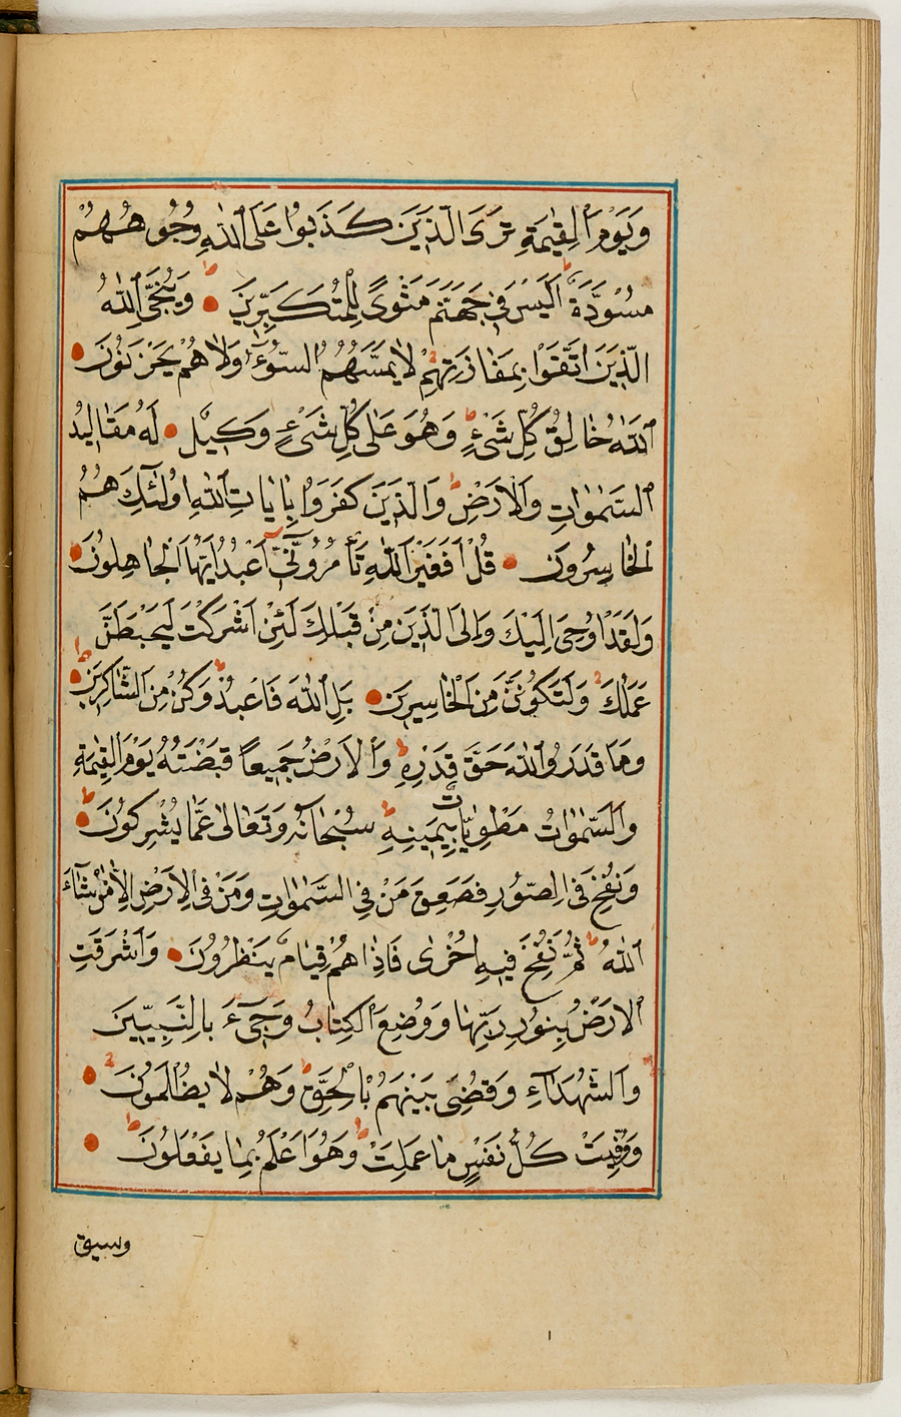 وَيَوْمَ الْقِيٰمَةِ تَرَى الَّذِينَ كَذَبُوا عَلَى اللّٰهِ وُجُوهُهُمْ
مُسْوَدَّةٌ اَلَيْسَ فِي جَهَنَّمَ مَثْوًى لِلْمُتَكَبِّرِينَ وَيُنَجِّي اللّٰهُ
الَّذِينَ اتَّقَوْا بِمَفَازَتِهِمْ لَا يَمَسُّهُمُ السُّوءُ وَلَا هُمْ يَحْزَنُونَ
اَللّٰهُ خَالِقُ كُلِّ شَيْءٍ وَهُوَ عَلٰى كُلِّ شَيْءٍ وَكِيلٌ لَهُ مَقَالِيدُ
السَّمٰوَاتِ وَالْاَرْضِ وَالَّذِينَ كَفَرُوا بِاٰيَاتِ اللّٰهِ اُولٰئِكَ هُمُ
الْخَاسِرُونَ قُلْ اَفَغَيْرَ اللّٰهِ تَأْمُرُونِّي اَعْبُدُ اَيُّهَا الْجَاهِلُونَ
وَلَقَدْ اُوحِيَ اِلَيْكَ وَاِلَى الَّذِينَ مِنْ قَبْلِكَ لَئِنْ اَشْرَكْتَ لَيَحْبَطَنَّ
عَمَلُكَ وَلَتَكُونَنَّ مِنَ الْخَاسِرِينَ بَلِ اللّٰهَ فَاعْبُدْ وَكُنْ مِنَ الشَّاكِرِينَ
وَمَا قَدَرُوا اللّٰهَ حَقَّ قَدْرِهِ وَالْاَرْضُ جَمِيعًا قَبْضَتُهُ يَوْمَ الْقِيٰمَةِ
وَالسَّمٰوَاتُ مَطْوِيَّاتٌ بِيَمِينِهِ سُبْحَانَهُ وَتَعَالٰى عَمَّا يُشْرِكُونَ
وَنُفِخَ فِي الصُّورِ فَصَعِقَ مَنْ فِي السَّمٰوَاتِ وَمَنْ فِي الْاَرْضِ اِلَّا مَنْ شَاءَ
اللّٰهُ ثُمَّ نُفِخَ فِيهِ اُخْرٰى فَاِذَا هُمْ قِيَامٌ يَنْظُرُونَ وَاَشْرَقَتِ
الْاَرْضُ بِنُورِ رَبِّهَا وَوُضِعَ الْكِتَابُ وَجِيءَ بِالنَّبِيِّينَ
وَالشُّهَدَاءِ وَقُضِيَ بَيْنَهُمْ بِالْحَقِّ وَهُمْ لَا يُظْلَمُونَ
وَوُفِّيَتْ كُلُّ نَفْسٍ مَا عَمِلَتْ وَهُوَ اَعْلَمُ بِمَا يَفْعَلُونَ
وسيق